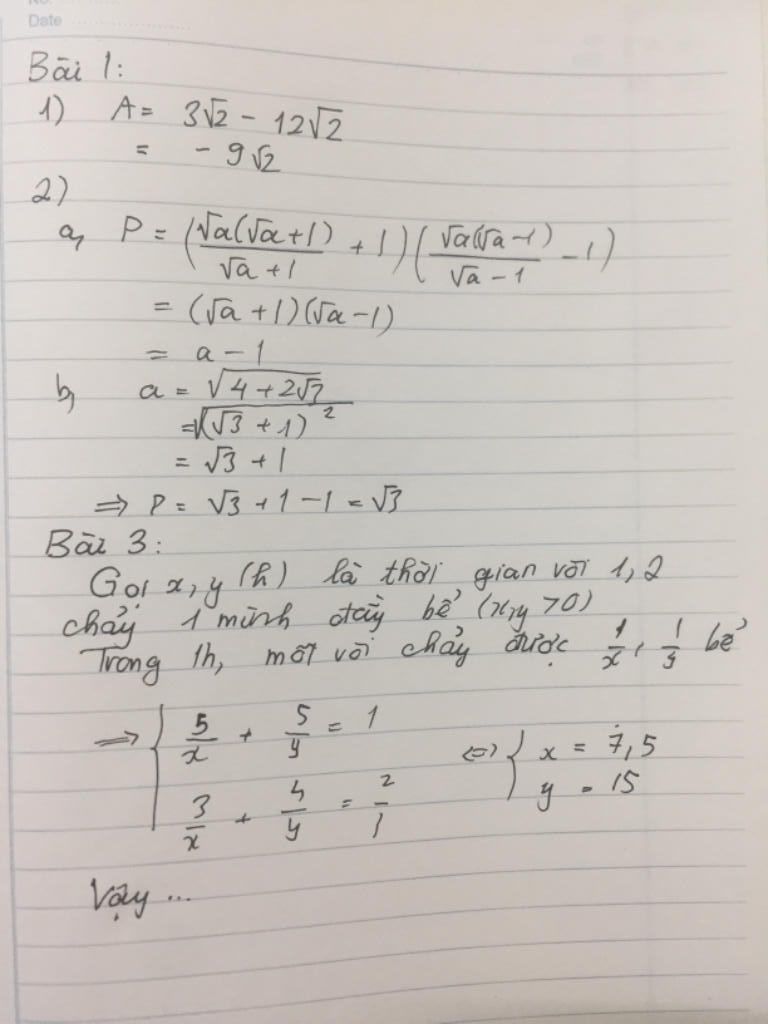 No.
Date
Bài 1:
1) A = 3√2 - 12√2
= - 9√2
2)
a, P = (√a(√a+1)/(√a+1) + 1)(√a(√a-1)/(√a-1) - 1)
= (√a+1)(√a-1)
= a-1
b, a = √(4+2√3)
= √((√3+1)²)
= √3+1
⇒ P = √3+1-1 = √3
Bài 3:
Gọi x, y (h) là thời gian vòi 1, 2
chảy 1 mình đầy bể (x,y >0)
Trong 1h, mỗi vòi chảy được 1/x, 1/y bể
⇒ { 5/x + 5/y = 1 ⇔ { x = 7,5
3/x + 4/y = 2/1 y = 15
Vậy ...